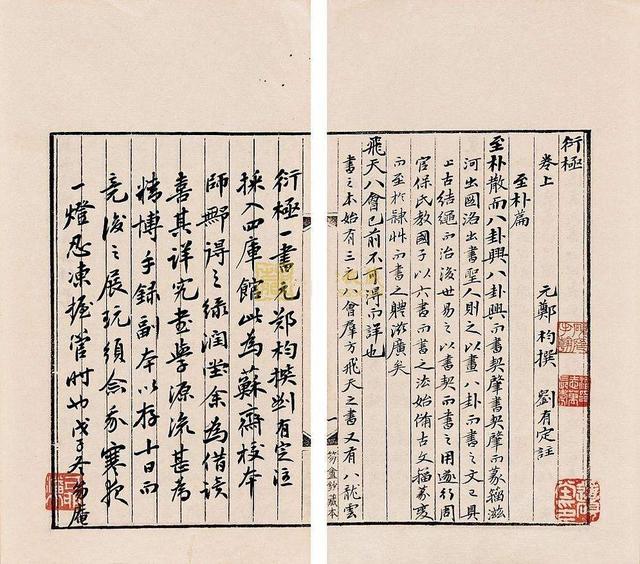 衍極
卷上
元鄭杓撰 劉有定註
至朴篇
至朴散而八卦興八卦興而書契肇書契肇而篆籀滋
河出圖洛出書聖人則之以畫八卦而書之文已具
上古結繩而治後世易之以書契而書之用遂行周
官保氏教國子以六書而書之法始備古文籀篆變
而至於隸艸而書之體滋廣矣
飛天八會已前不可得而詳也
書之本始有三元八會羣方飛天之書又有八龍雲
笏盦鈔藏本
衍極一書元鄭杓撰劉有定注
採入四庫館此為蘇齋校本
師鄦得之綠潤堂余為借讀
喜其詳究書學源流甚為
精博手錄副本以存十日而
竟後之展玩須念我寒夜
一燈忍凍握管時也戊子冬笏盦